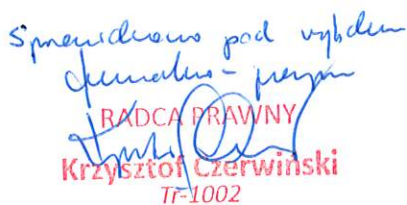 Sprawdzono pod względem
formalno-prawnym
RADCA PRAWNY
Krzysztof Czerwiński
Tr-1002